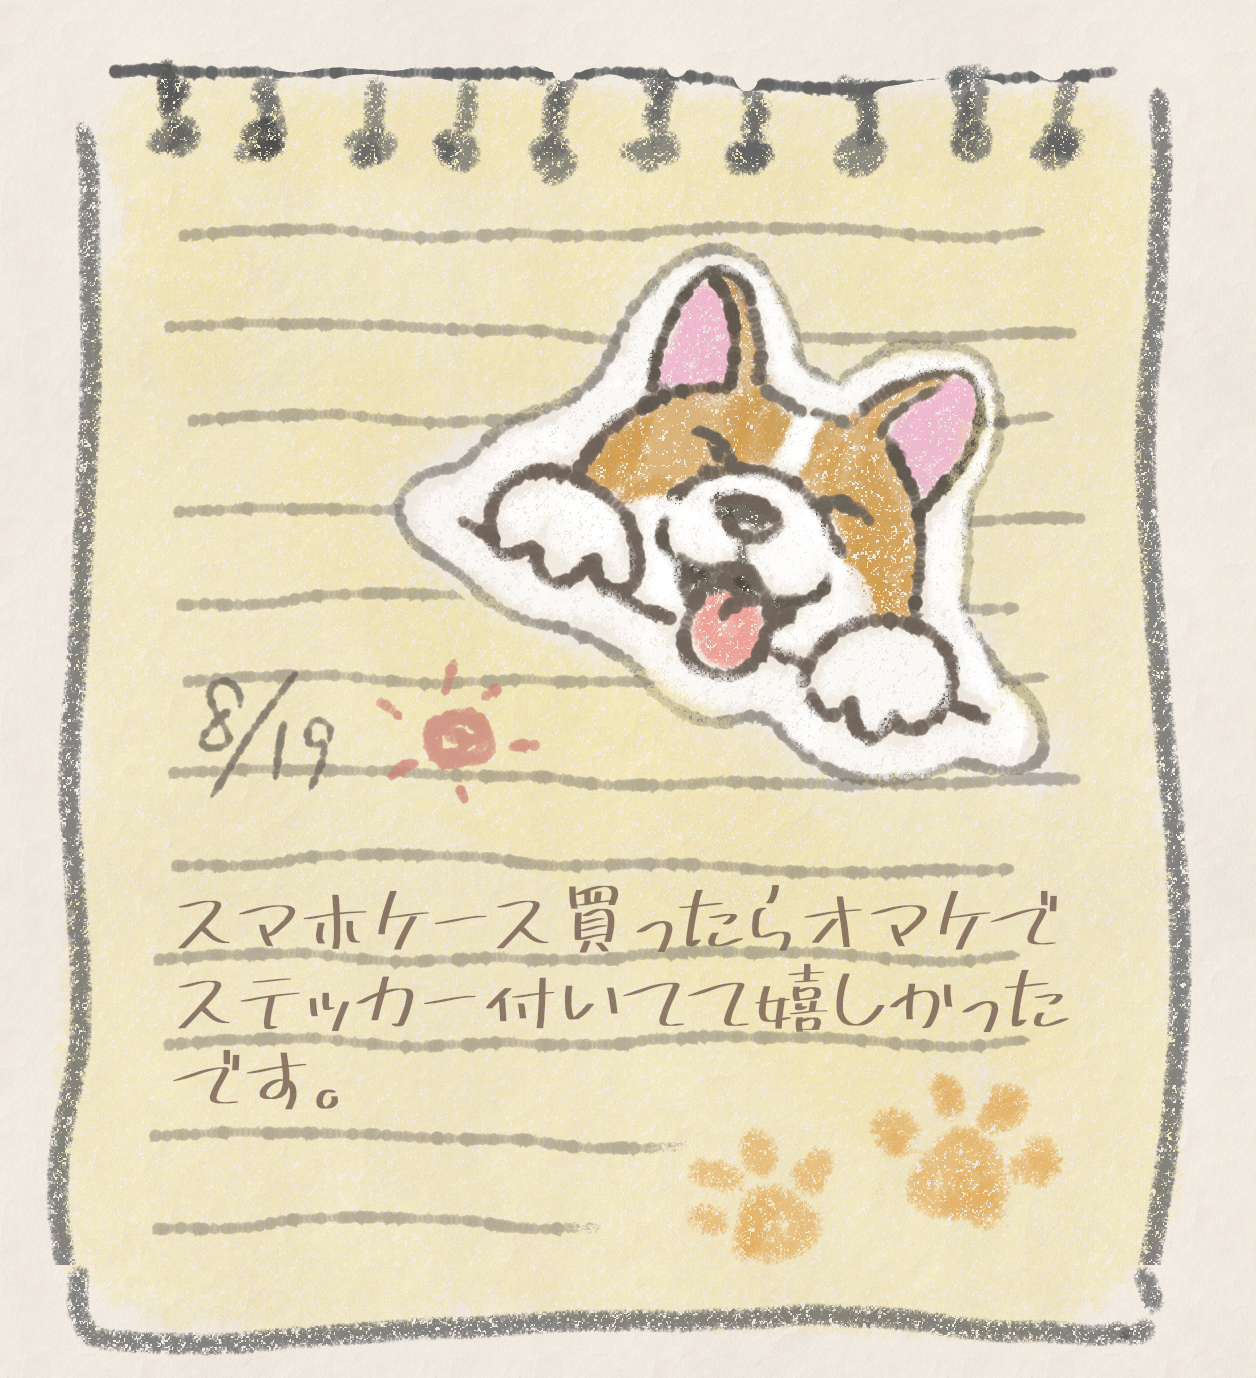 8/19
スマホケース買ったらオマケで
ステッカー付いてて嬉しかった
です。